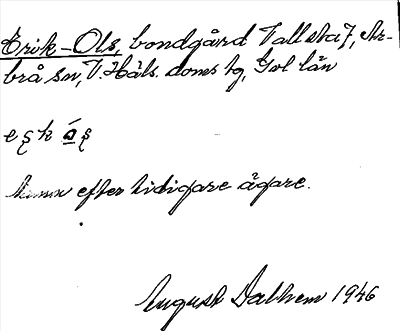 Erik-Ols, bondgård Vallsta 7, Ar-
brå sn, V. Häls. doms hg, Gvl län
Namn efter tidigare ägare.
August Dalhem 1946